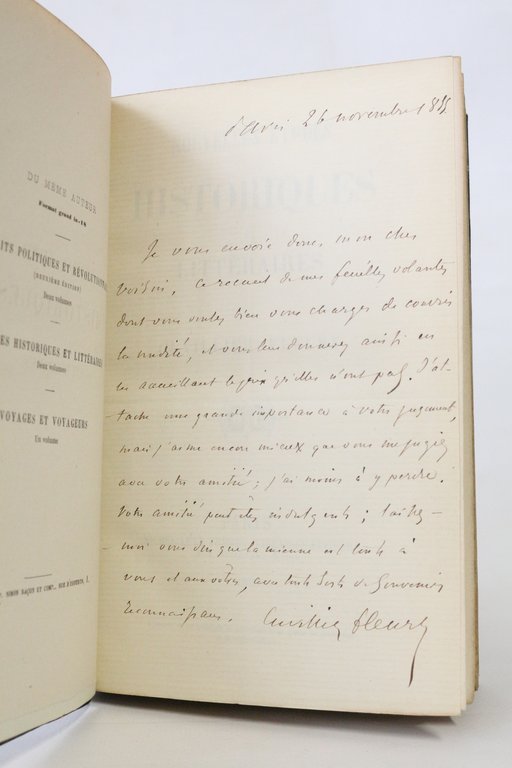 DU MÊME AUTEUR
Format grand in-18
ITS POLITIQUES ET RÉVOLUTIONN
(DEUXIÈME ÉDITION)
Deux volumes
ES HISTORIQUES ET LITTÉRAIRES
Deux volumes
VOYAGES ET VOYAGEURS
Un volume
SIMON RAÇON ET COMP., RUE D'ERFURTH, 1.
HISTORIQUES
LITTÉRAIRES
Paris 26 novembre 18
Je vous envoie donc, mon cher
voisin, ce recueil de mes feuilles volantes
dont vous voulez bien vous charger de couvrir
la nudité, et vous leur donnerez ainsi en
les accueillant le prix qu'elles n'ont pas. J'at-
tache une grande importance à votre jugement,
mais j'aime encore mieux que vous me jugiez
avec votre amitié ; j'ai moins à y perdre.
Votre amitié peut être indulgente ; laissez-
moi vous dire que la mienne est toute à
vous et aux vôtres, avec toute sorte de souvenirs
reconnaissans. Cuvillier Fleury